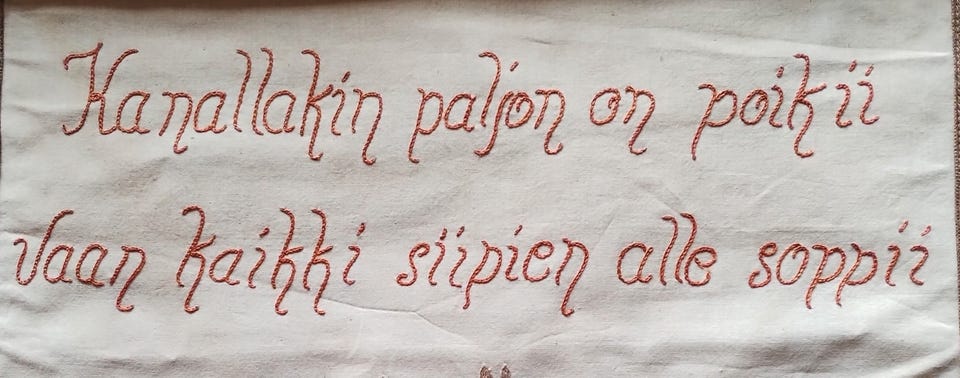 Kanallakin paljon on poikii
vaan kaikki siipien alle soppii